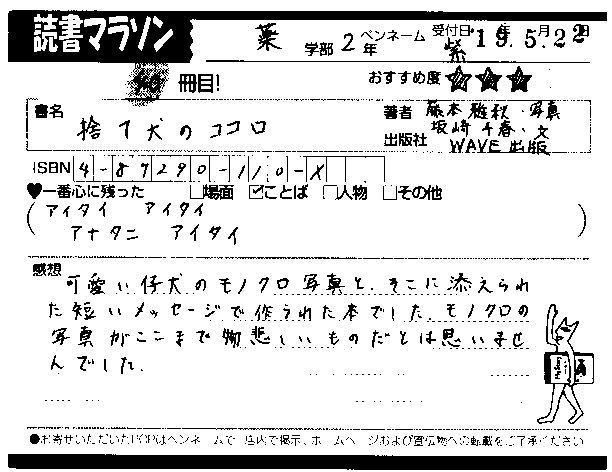 読書マラソン
薬 学部 2 年 ペンネーム 紫 受付日 '19年 5月 22日
冊目! おすすめ度 ★★★
書名 捨て犬のココロ
著者 藤本雅秋・写真
坂崎千春・文
出版社 WAVE出版
ISBN 4-87290-110-X
♥一番心に残った □場面 ☑ことば □人物 □その他
(アイタイ アイタイ
アナタニ アイタイ)
感想 可愛い仔犬のモノクロ写真と、そこに添えられ
た短いメッセージで作られた本でした。モノクロの
写真がここまで物悲しいものだとは思いませ
んでした。
●お寄せいただいたPOPはペンネームで店内で掲示、ホームページおよび宣伝物への転載をご了承ください